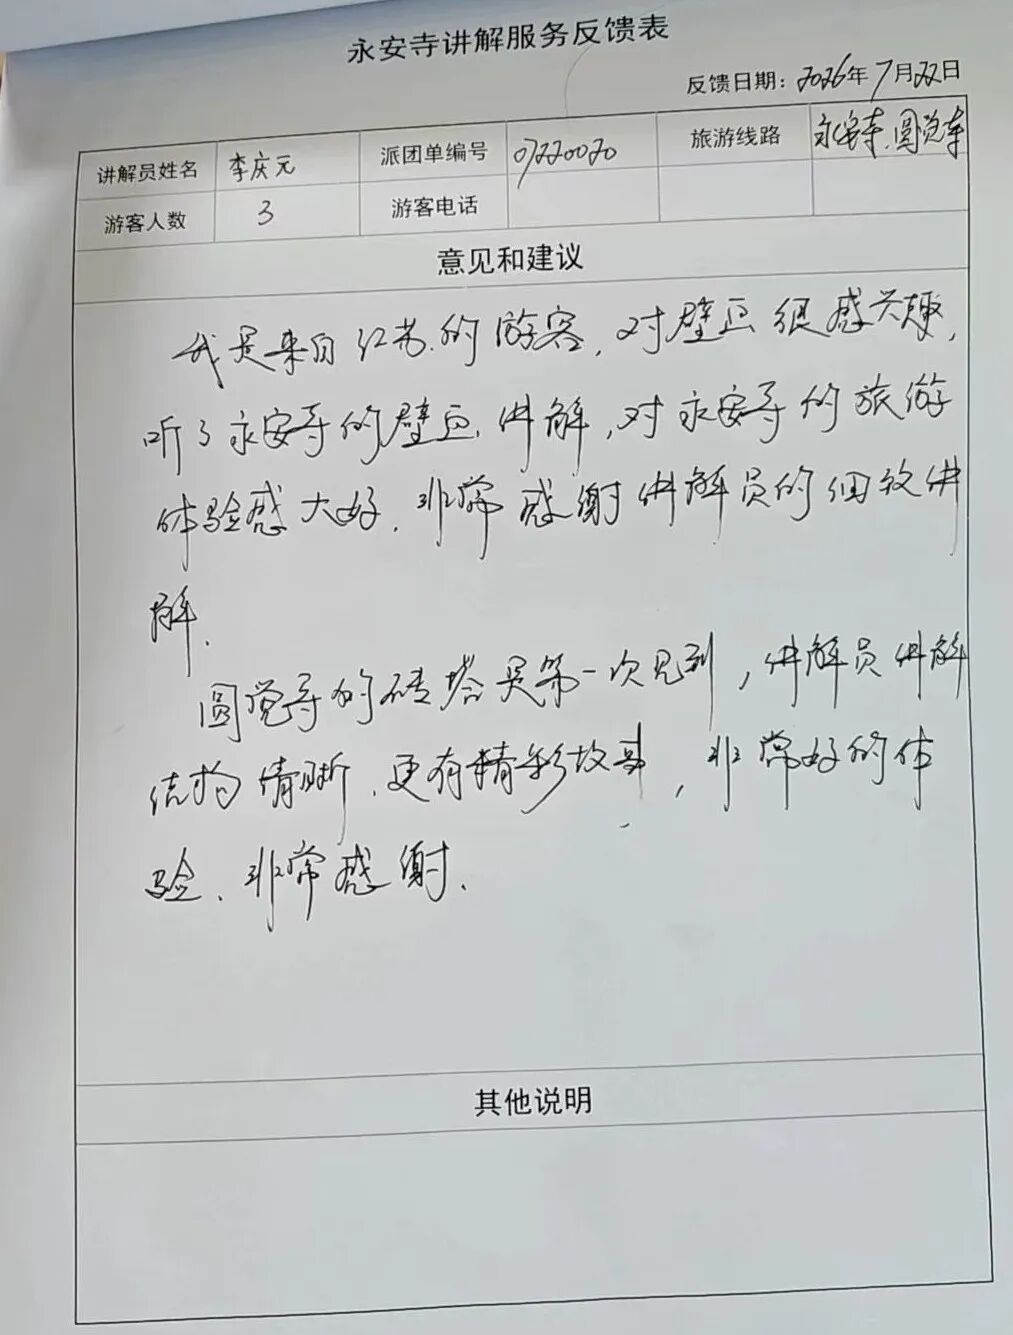 永安寺讲解服务反馈表
反馈日期：2026年7月22日
讲解员姓名 李庆元 派团单编号 07220020 旅游线路 永安寺、圆觉寺
游客人数 3 游客电话
意见和建议
我是来自江苏的游客，对壁画很感兴趣，
听了永安寺的壁画讲解，对永安寺的旅游
体验感大好，非常感谢讲解员的细致讲
解.
圆觉寺的砖塔是第一次见到，讲解员讲解
结构清晰、更有精彩故事，非常好的体
验、非常感谢.
其他说明